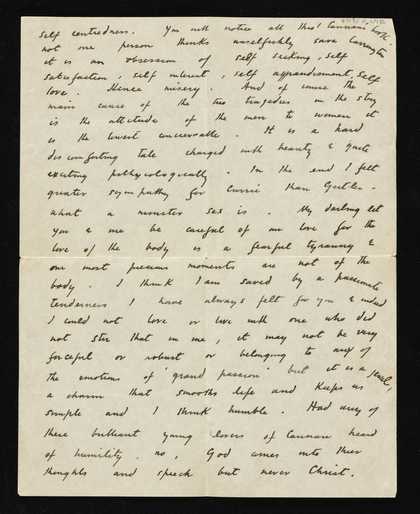 self centredness. You will notice all thro' Cannans book
not one person thinks unselfishly save Carrington
it is an obsession of self seeking, self
satisfaction, self interest, self aggrandisment, self
love. Hence misery. And of course the
main cause of the two tragedies in the story
is the attitude of the men to women it
is the lowest conceivable. It is a hard
discomforting tale charged with beauty & quite
exciting psthycologically. In the end I felt
greater sympathy for Currie than Gertler.
What a monster sex is. My darling let
you & me be careful of our love for the
love of the body is a fearful tyranny &
our most precious moments are not of the
body. I think I am saved by a passionate
tenderness I have always felt for you & indeed
I could not love or live with one who did
not stir that in me, it may not be very
forceful or robust or belonging to any of
the emotions of 'grand passion' but it is a jewel,
a charm that smooths life and keeps us
simple and I think humble. Had any of
these brilliant young lovers of Cannan heard
of humility. no, God comes into their
thoughts and speech but never Christ.